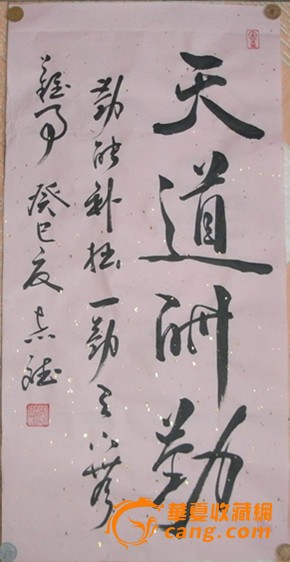 天道酬勤
勤能补拙一勤天下无
难事 癸巳夏志斌
華夏收藏網
cang.com